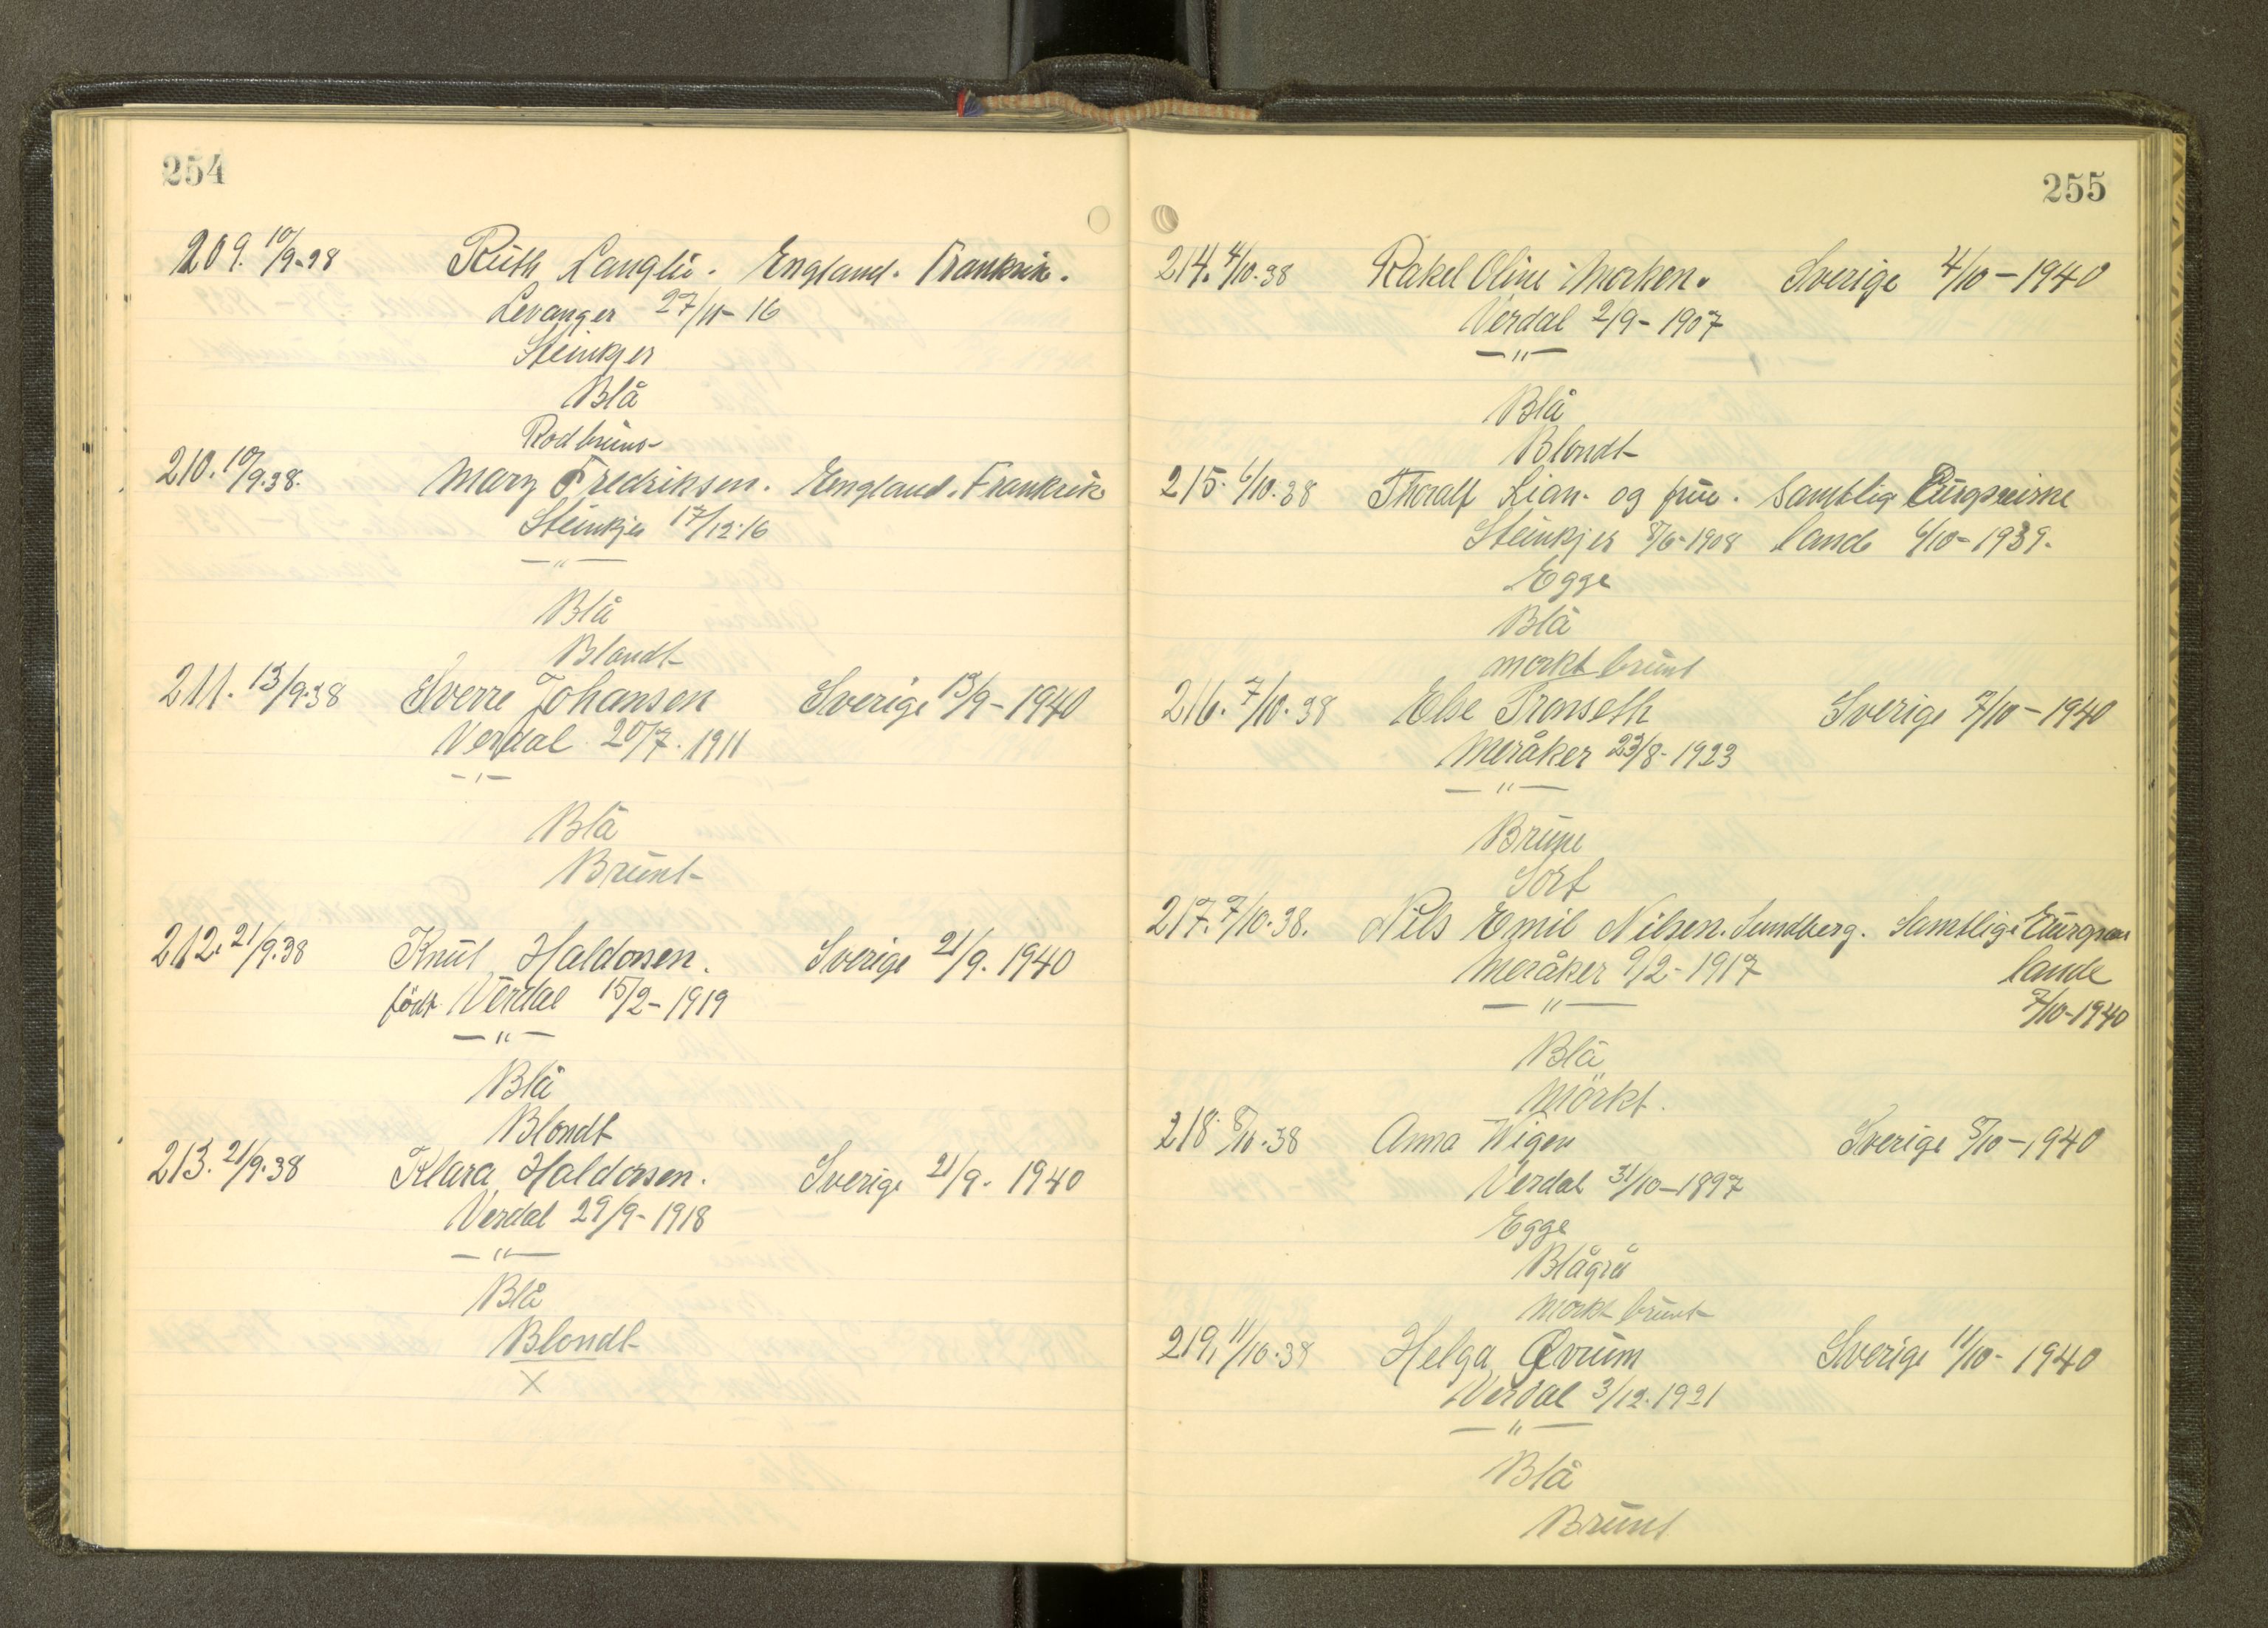 254
209. 10/9-38 Ruth Langli. England. Frankrik.
Levanger 27/11-16
Steinkjer
Blå
Rødbrunt
210. 10/9.38. Mary Fredriksen. England. Frankrik
Steinkjer 17/12-16
— " —
Blå
Blondt
211. 13/9.38 Sverre Johansen Sverige 13/9-1940
Verdal 20/7. 1911
— " —
Blå
Brunt
212. 21/9.38 Knut Haldorsen. Sverige 21/9. 1940
født Verdal 15/2-1919
— " —
Blå
Blondt
213. 21/9.38 Klara Haldorsen. Sverige 21/9. 1940
Verdal 29/9-1918
— " —
Blå
Blondt
X
255
214. 4/10.38 Rakel Oline Morken. Sverige 4/10-1940
Verdal 2/9-1907
— " —
Blå
Blondt
215. 6/10.38 Thoralf Lian. og frue. Samtlig
Steinkjer 8/6-1908 lande 6/10-1939.
Egge
Blå
mørkt brunt
216. 7/10.38 Else Tronseth Sverige 7/10-1940
Meråker 23/8-1923
— " —
Brune
Sort
217. 7/10.38. Nils Emil Nilsen. Sundberg. Samtlige
Meråker 9/2-1917 lande
— " — 7/10-1940
Blå
Mörkt.
218. 8/10.38 Anna Wigen Sverige 8/10-1940
Verdal 31/10-1897
Egge
Blågrå
mørkt brunt
219. 11/10.38 Helga Øvrum Sverige 11/10-1940
Verdal 3/12.1921
— " —
Blå
Brunt